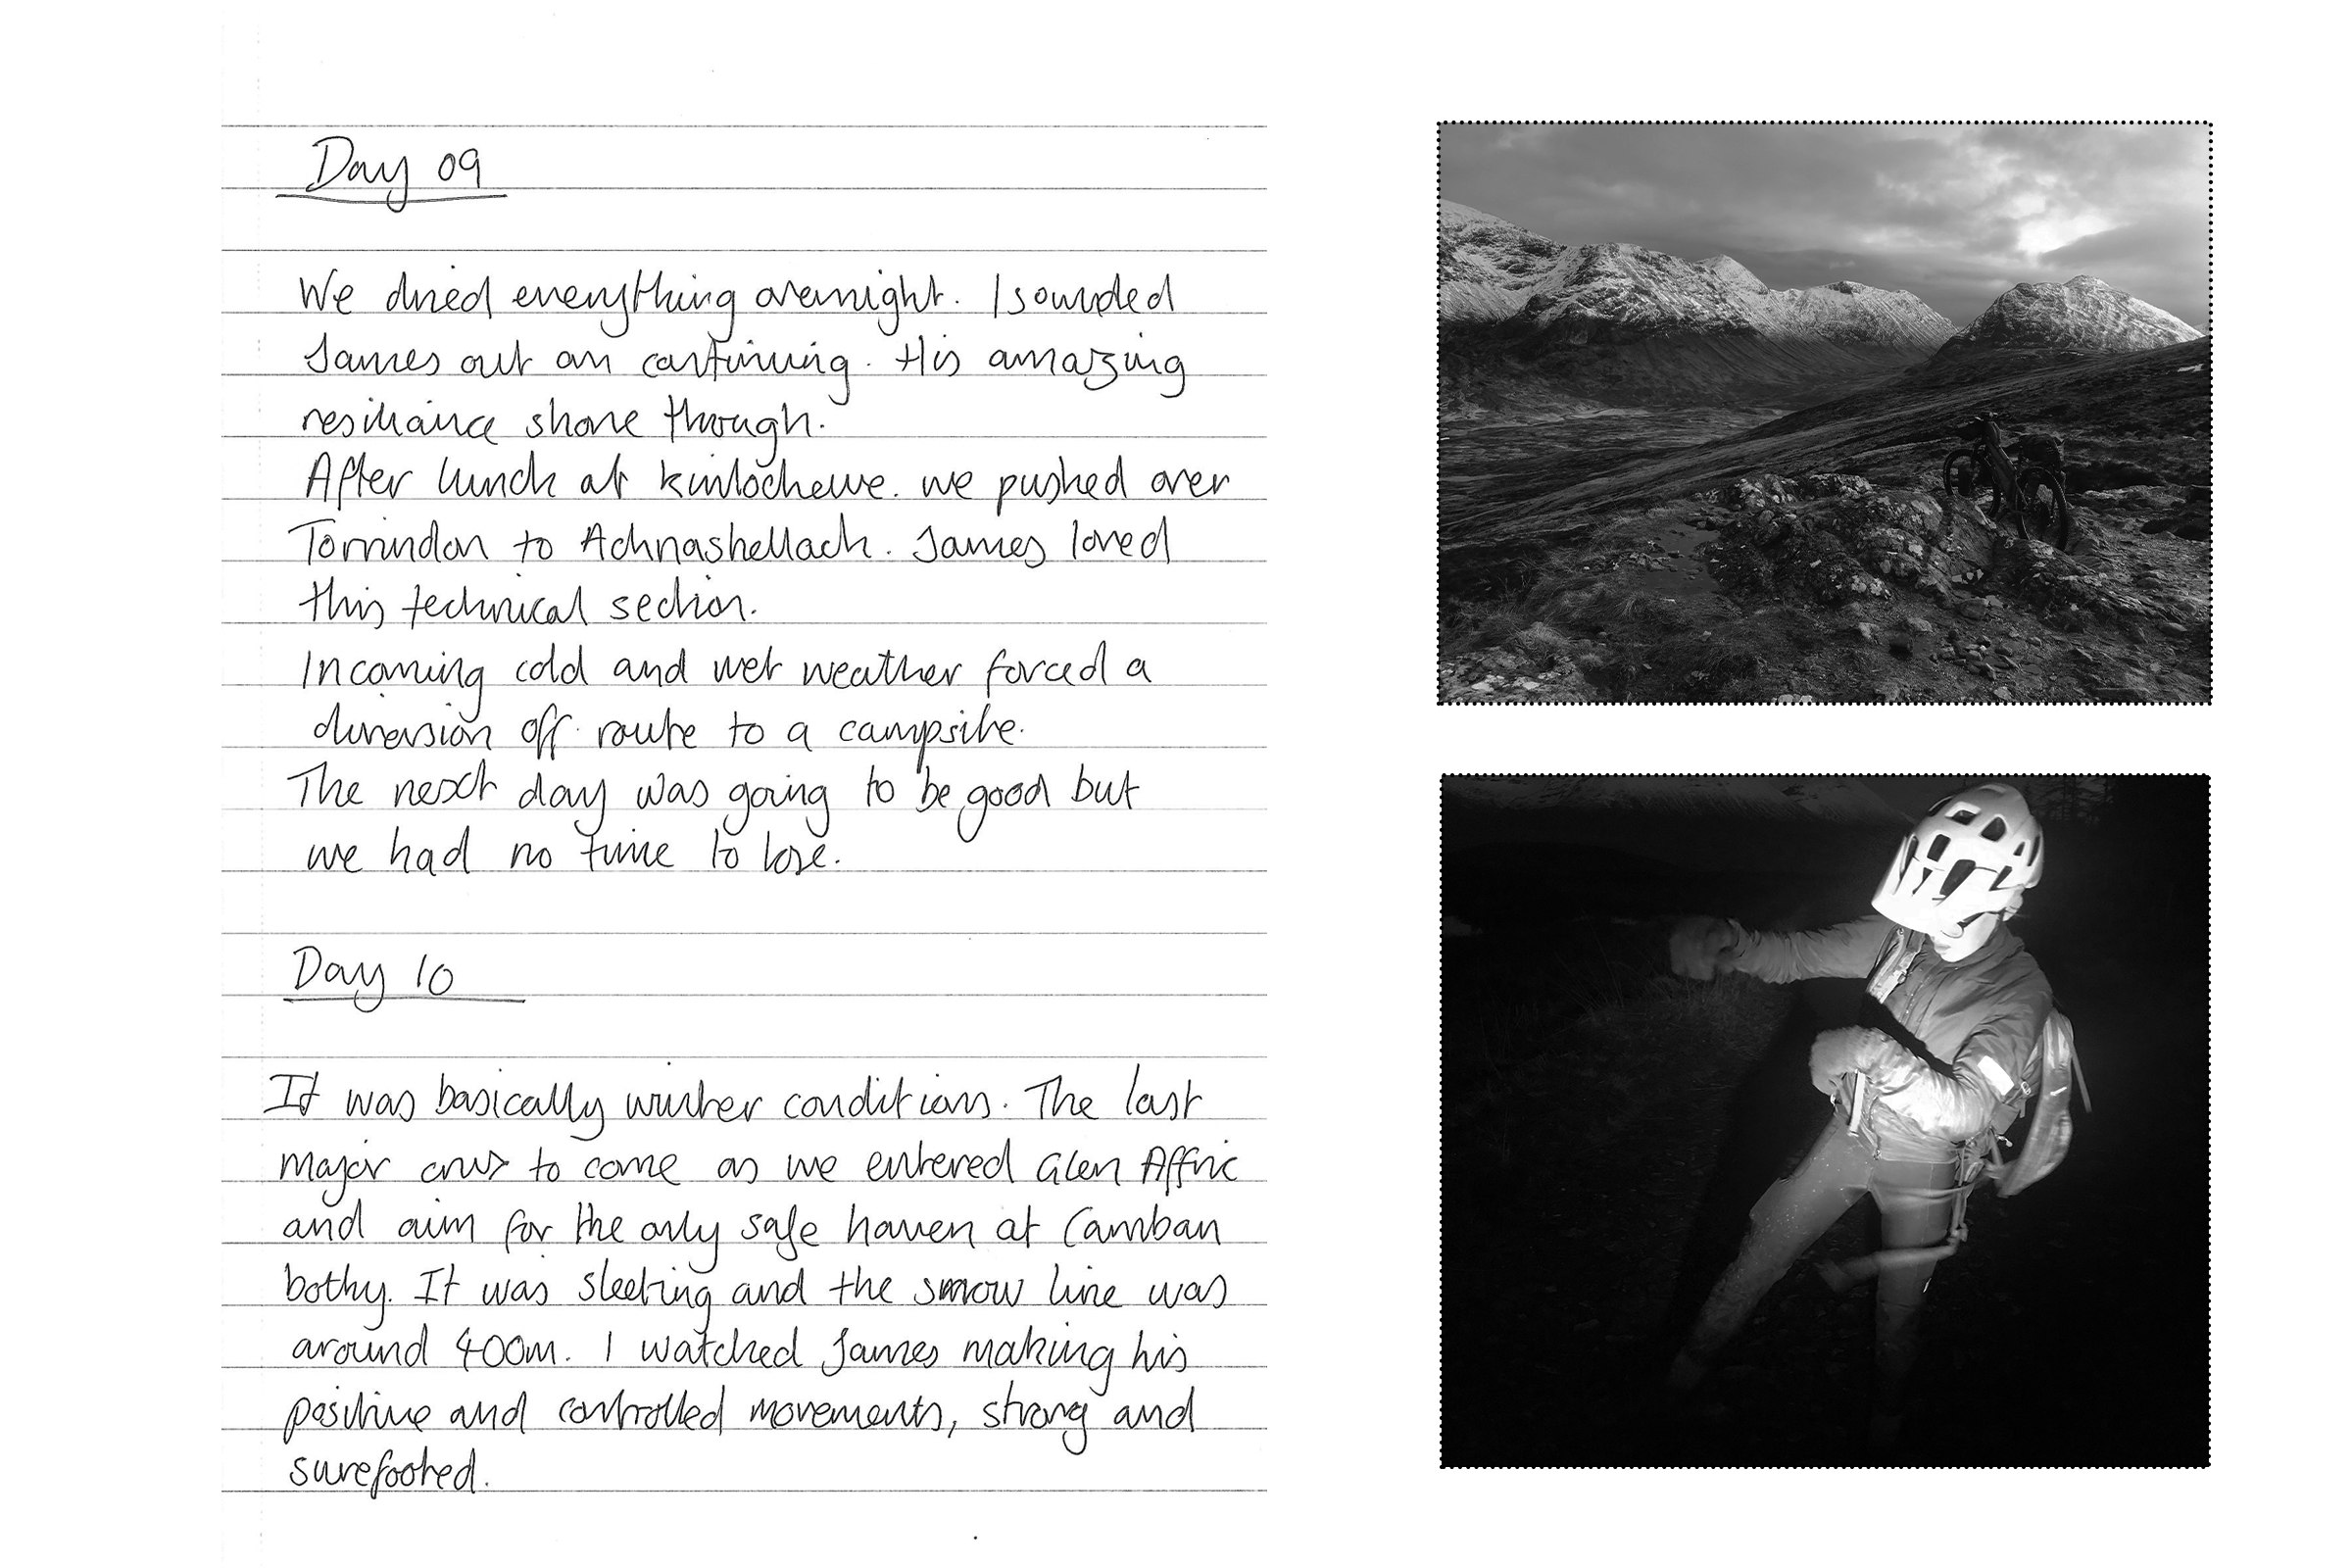 Day 09
We dried everything overnight. I sounded
James out on continuing. His amazing
resiliance shone through.
After lunch at Kinlochewe. we pushed over
Torrindon to Achnashellach. James loved
this technical section.
Incoming cold and wet weather forced a
diversion off route to a campsite.
The next day was going to be good but
we had no time to lose.
Day 10
It was basically winter conditions. The last
major crux to come as we entered Glen Affric
and aim for the only safe haven at Camban
bothy. It was sleeting and the snow line was
around 400m. I watched James making his
positive and controlled movements, strong and
surefooted.